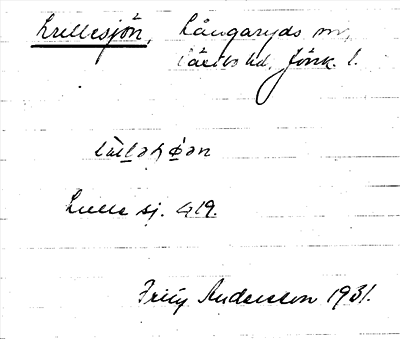 Lullesjön, Långaryds sn,
Västbo hd. Jönk. l.
Lulle sj. G19.
Fritz Andersson 1931.